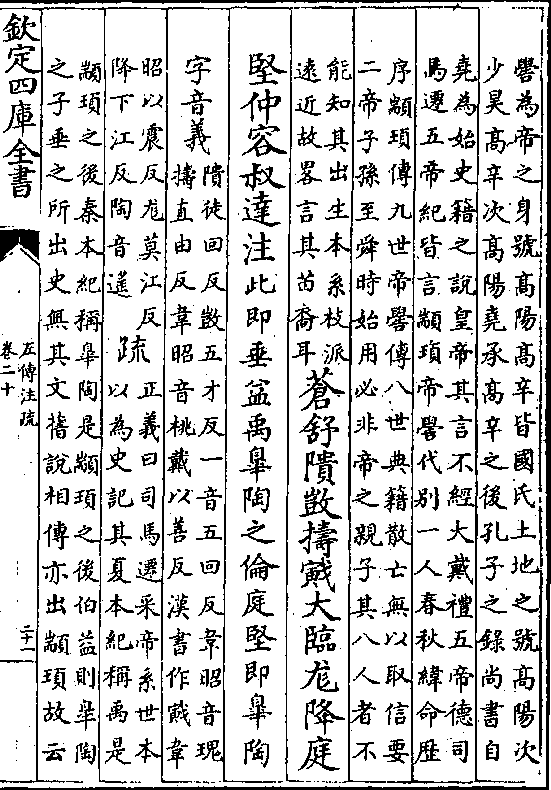 嚳為帝之身號髙陽髙辛皆國氏土地之號髙陽次
少昊髙辛次髙陽堯承髙辛之後孔子之錄尚書自
堯為始史籍之說皇帝其言不經大戴禮五帝德司
馬遷五帝紀皆言顓頊帝嚳代別一人春秋緯命歴
序顓頊傳九世帝嚳傳八世典籍散亡無以取信要
二帝子孫至舜時始用必非帝之親子其八人者不
能知其出生本系枝派
逺近故畧言其苗裔耳
蒼舒隤敳擣戭大臨尨降庭
堅仲容叔達注此即垂益禹臯陶之倫庭堅即臯陶
字音義
隤徒回反敳五才反一音五回反韋昭音瑰
擣直由反韋昭音桃戴以善反漢書作戭韋
昭以震反尨莫江反
降下江反陶音遙
疏
正義曰司馬遷采帝系世本
以為史記其夏本紀稱禹是
顓頊之後秦本紀稱臯陶是顓頊之後伯益則臯陶
之子垂之所出史無其文舊說相傳亦出顓頊故云
欽定四庫全書
左傳注疏
卷二十
二十一